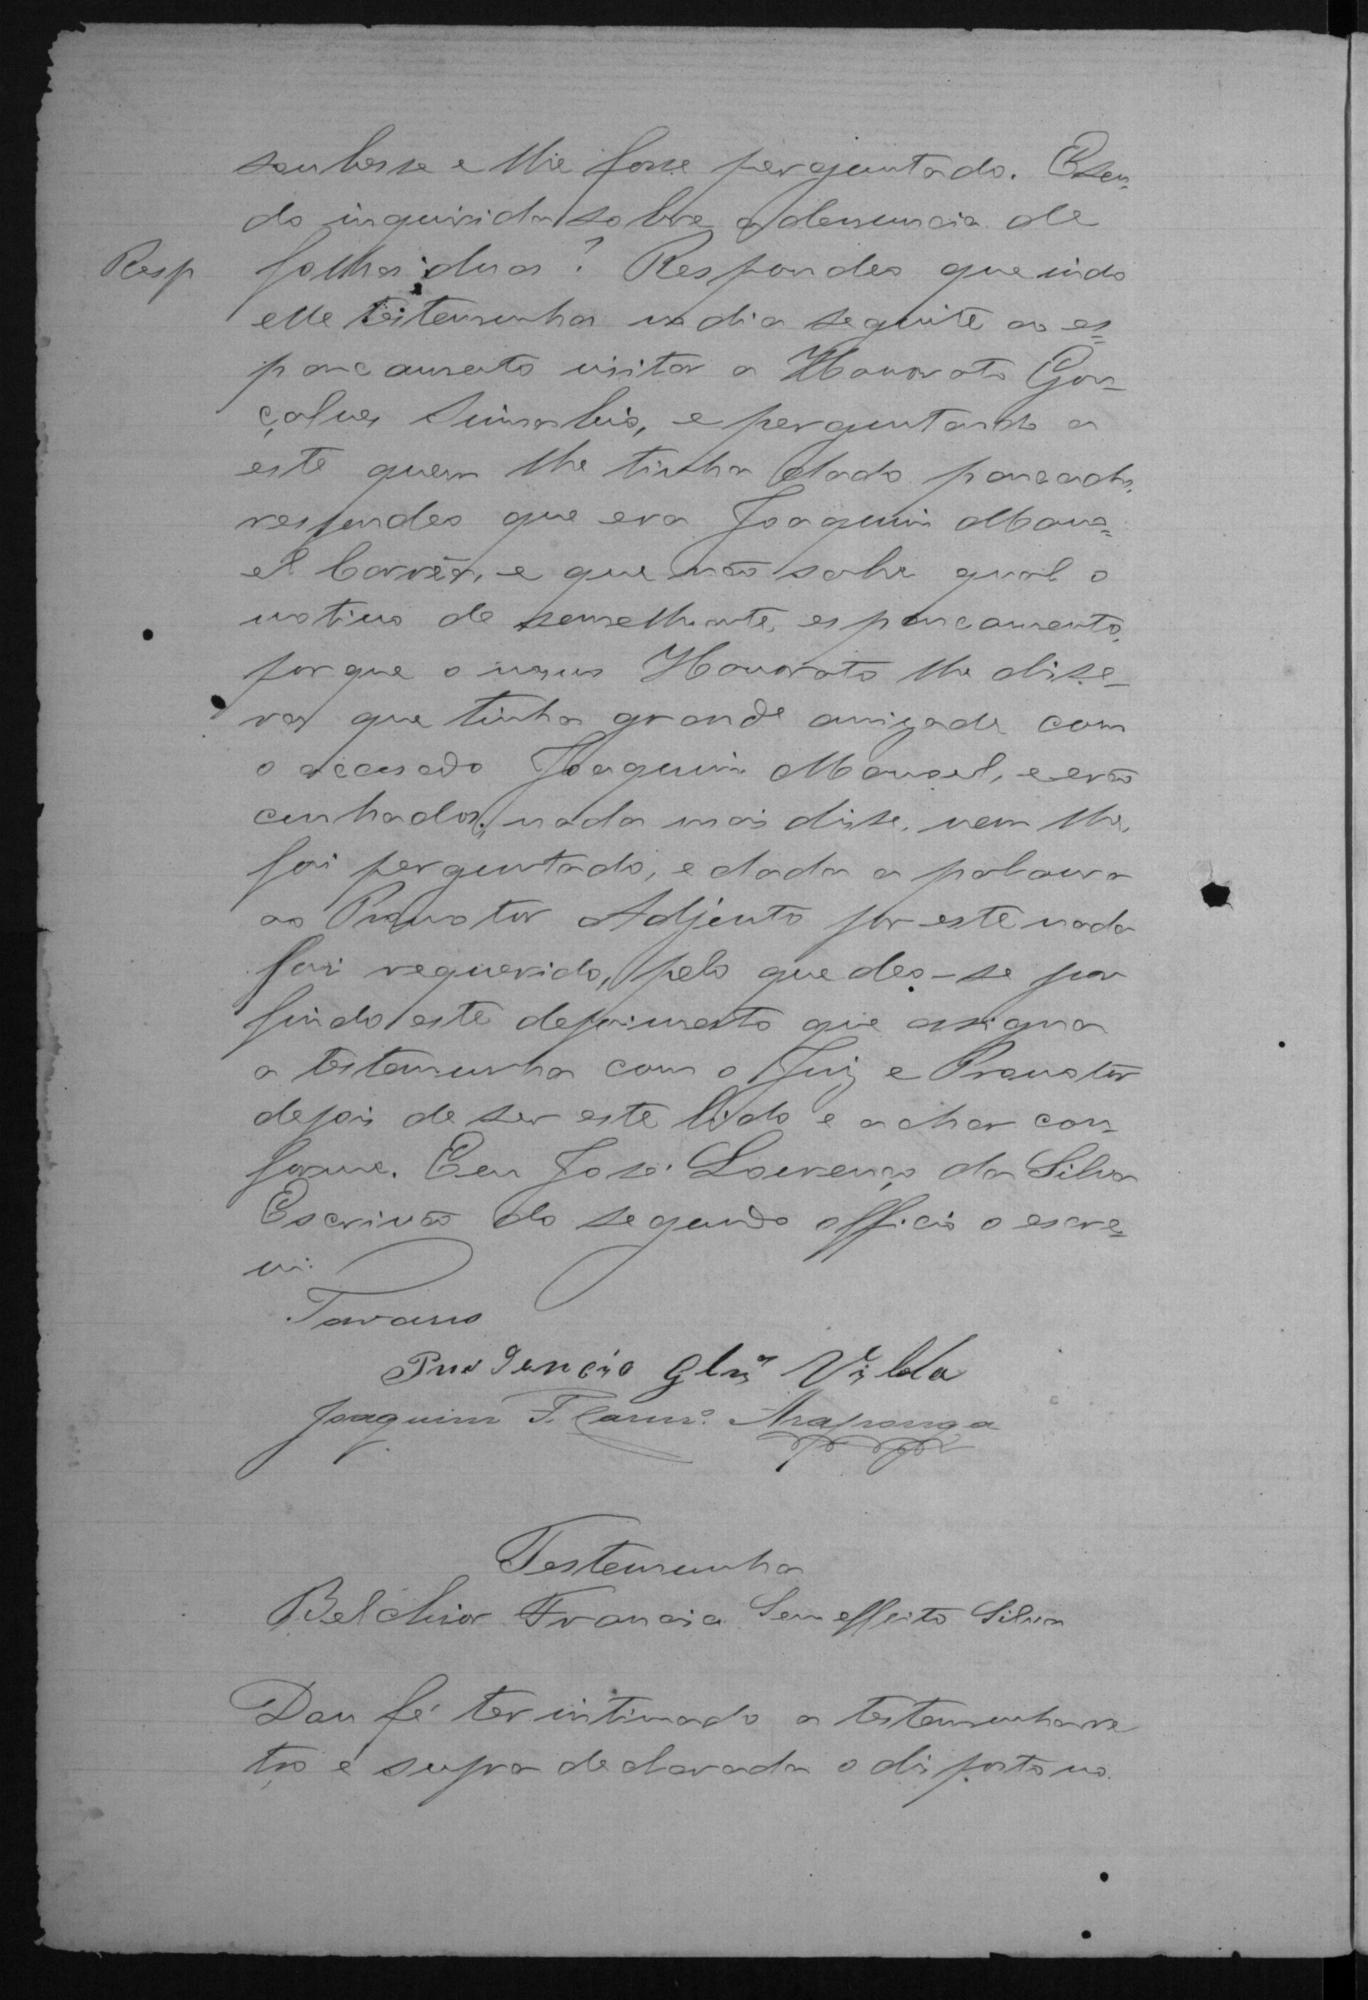 soubesse e lhe fosse perguntado. E sen-
do inquirida sobre a denuncia de
Resp folhas duas? Respondeo que indo
elle testemunha no dia seguinte ao es=
pancamento visitar a Honorato Gon-
çalves Simabio, e perguntando a
este quem lhe tinha dado pancadas,
respondeo que era Joaquim Mano=
el Corrêa, e que não sabe qual o
motivo de semelhante espancamento,
porque o mesmo Honorato lhe disse-
ra que tinha grande amizade com
o accusado Joaquim Manoel, e erão
cunhados; nada mais disse, nem lhe
foi perguntado, e dada a palavra
ao Promotor Adjunto por este nada
foi requerido, pelo que deo-se por
findo este depoimento que assigna
a testemunha com o Juiz e Promotor
depois de ser este lido e achar con-
forme. Eu José Lourenço da Silva
Escrivão do segundo officio o escre-
vi.
Tavares
Prudencio Glz Villa
Joaquim F. Araponga
Testemunha
Belchior Francia Sem effeito Silva
Dou fé ter intimado a testemunha re
tro e supra declarada o disposto no